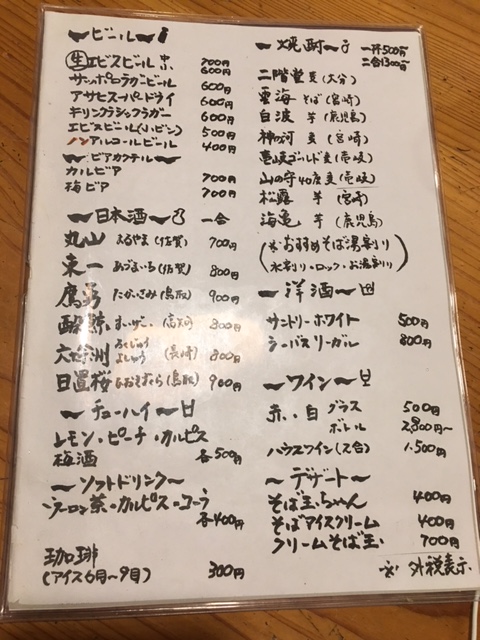 〜ビール〜
㊗生エビスビール 中 700円
小 600円
サッポロラガービール 600円
アサヒスーパードライ 600円
キリンクラシックラガー 600円
エビスビール(小ビン) 500円
ノンアルコールビール 400円
〜ビアカクテル〜
カルピア 700円
梅ビア 700円
〜日本酒〜 一合
丸山 まるやま(佐賀) 700円
東一 あづまいち(佐賀) 800円
鷹勇 たかいさみ(鳥取) 900円
酔鯨 すいげい(高知) 800円
六十餘洲 ろくじゅうよしゅう(長崎) 800円
日置桜 ひおきざくら(鳥取) 900円
〜チューハイ〜
レモン・ピーチ・カルピス
梅酒 各500円
〜ソフトドリンク〜
ウーロン茶・カルピス・コーラ
各400円
珈琲
(アイス6月〜9月) 300円
〜焼酎〜 一杯500円
二合1300円
二階堂 麦(大分)
雲海 そば(宮崎)
白波 芋(鹿児島)
神の河 麦(宮崎)
壱岐ゴールド 麦(壱岐)
山の守40度 麦(壱岐)
松露 芋(宮崎)
海亀 芋(鹿児島)
(※おすすめそば湯割り
水割り・ロック・お湯割り)
〜洋酒〜
サントリーホワイト 500円
シーバスリーガル 800円
〜ワイン〜
赤・白 グラス 500円
ボトル 2,800円〜
ハウスワイン(2合) 1,500円
〜デザート〜
そば玉ちゃん 400円
そばアイスクリーム 400円
クリームそば玉 700円
※外税表示